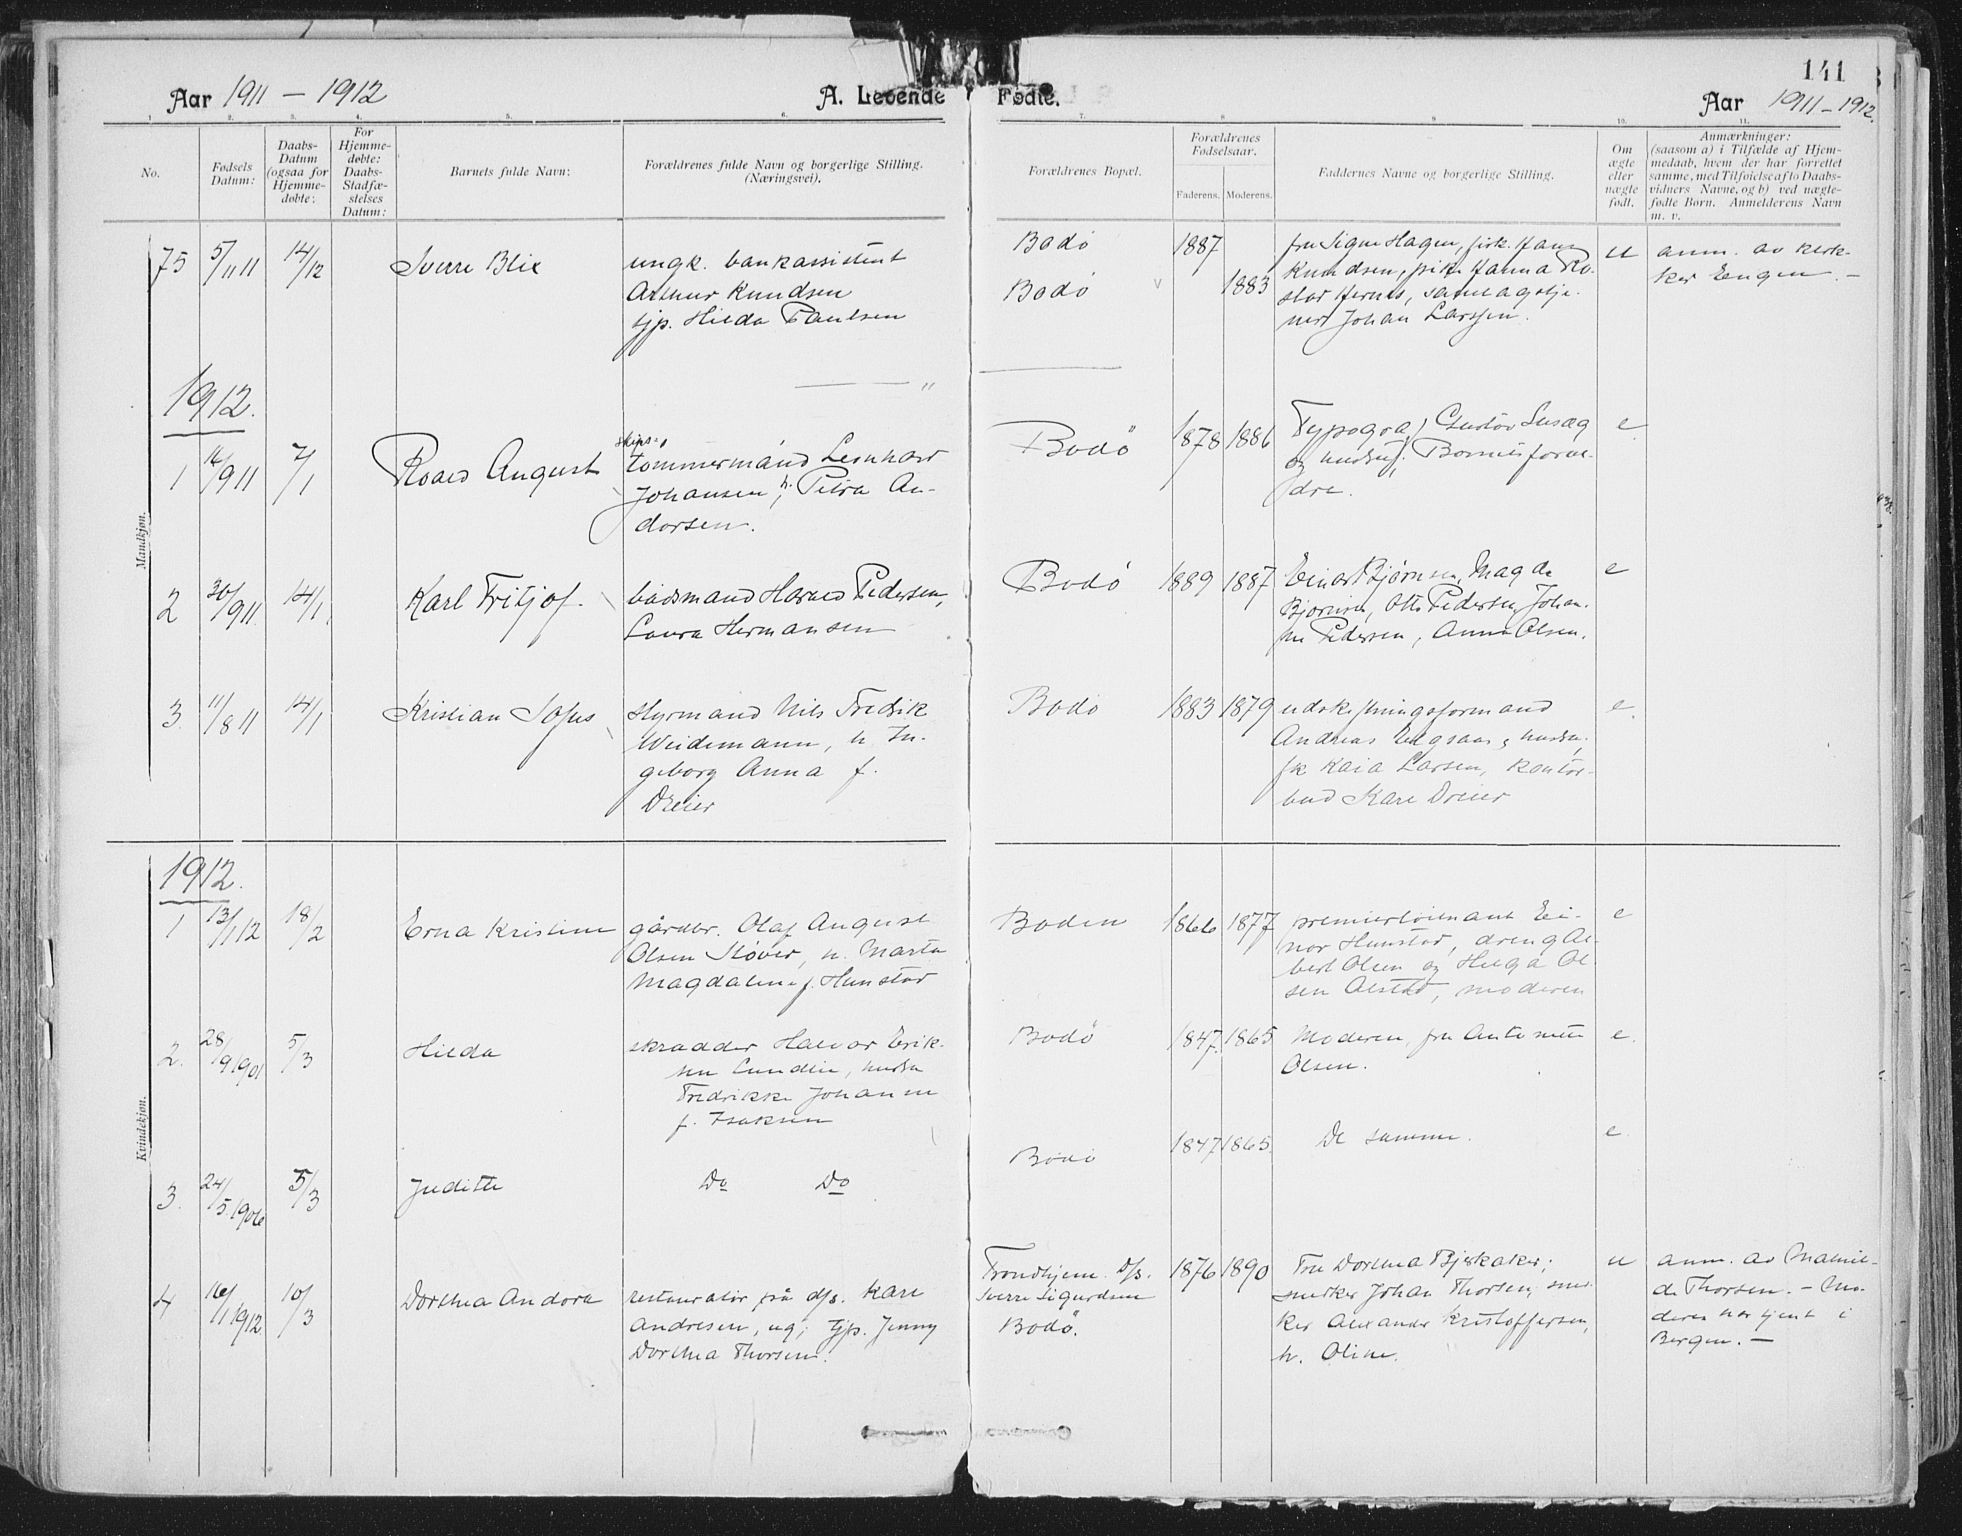 141
Aar 1911 – 1912
A. Levende Fødte.
Aar 1911 – 1912.
1. 2. 3. 4. 5. 6. 7. 8. 9. 10. 11.
No.
Fødsels Datum:
Daabs-
Datum
(ogsaa for
Hjemme-
døbte:
For
Hjemme-
døbte:
Daabs-
Stadfæ-
stelses
Datum:
Barnets fulde Navn:
Forældrenes fulde Navn og borgerlige Stilling.
(Næringsvei).
Forældrenes Bopæl.
Forældrenes
Fødselsaar.
Faderens. Moderens.
Faddernes Navne og borgerlige Stilling.
Om
ægte
eller
uægte
født.
Anmærkninger:
(saasom a) i Tilfælde af Hjem-
medaab, hvem der har forrettet
samme, med Tilføielse af to Daabs-
vidners Navne, og b) ved uægte-
fødte Børn. Anmelderens Navn
m. v.
Mandkjøn.
75 5/11 11 14/12 Sverre Blix
ungk. bankassistent
Arthur Knudsen
tjp. Hilda Paulsen
Bodö
Bodö
1887
1883
fru Signe Hagen, pik. Hans
Knudsen, pike Hanna Ro-
stad Hernes,
Johan Larssen.
u
anm. av
ker Engen. –
1912.
1 16/9 11 7/1 Roald August
skips-
tømmermand Leonhard
Johansen, h. Petra An-
dorsen.
Bodö 1878 1886
Typogra Gustav
og hustru, Barnets foræl-
dre.
e
2 30/9 11 14/1 Karl Fritjof.
baadsmand Harald Pedersen,
Laura Hermansen
Bodö 1889 1887
Einar Bjørnsen, Magda
Bjørnsen, Otto Pedersen, Johan-
ne Pedersen, Anna Olsen.
e
3. 11/8 11 14/1 Kristian Sofus
styrmand Nils Fredrik
Weidemann, h. In-
geborg Anna f.
Dreier
Bodö 1883 1879
udskiftningsformand
Andreas , hustru,
frk Kaia Larsen, kontor-
bud Karl Dreier
e.
Kvindekjøn.
1912.
1 13/1 12 18/2 Erna Kristine
gårdbr. Olaf August
Olsen Støver, h. Marta
Magdalene f. Hunstad
Bodin 1866 1877
premierløitnant Ei-
nar Hunstad, dreng Al-
bert Olsen og Helga Ol-
sen Alstad, moderen
e
2. 28/9 1901 5/3 Hilda
skradder Halvor Erik-
sen Lundli, hustru
Fredrikke Johanne
f. Isaksen
Bodö 1847. 1865
Moderen, fru Antonette
Olsen.
e.
3. 24/5. 1906 5/3 Judith
Do Do
Bodö 1847 1865.
De samme.
e.
4 16/1 1912 10/3 Dorthea Andora
restauratør på d/s. Karl
Andresen, ug; tjp. Jenny
Dorthea Thorsen.
Trondhjem. D/s.
Sverre Sigurdsøn
Bodö.
1876 1890
Fru Dorthea Bjerkaker;
snekker Johan Thorsen, sne-
ker Alexander Kristoffersen,
h. Oline.
u
anm. av Matil-
de Thorsen. – Mo-
deren har tjent i
Bergen. –